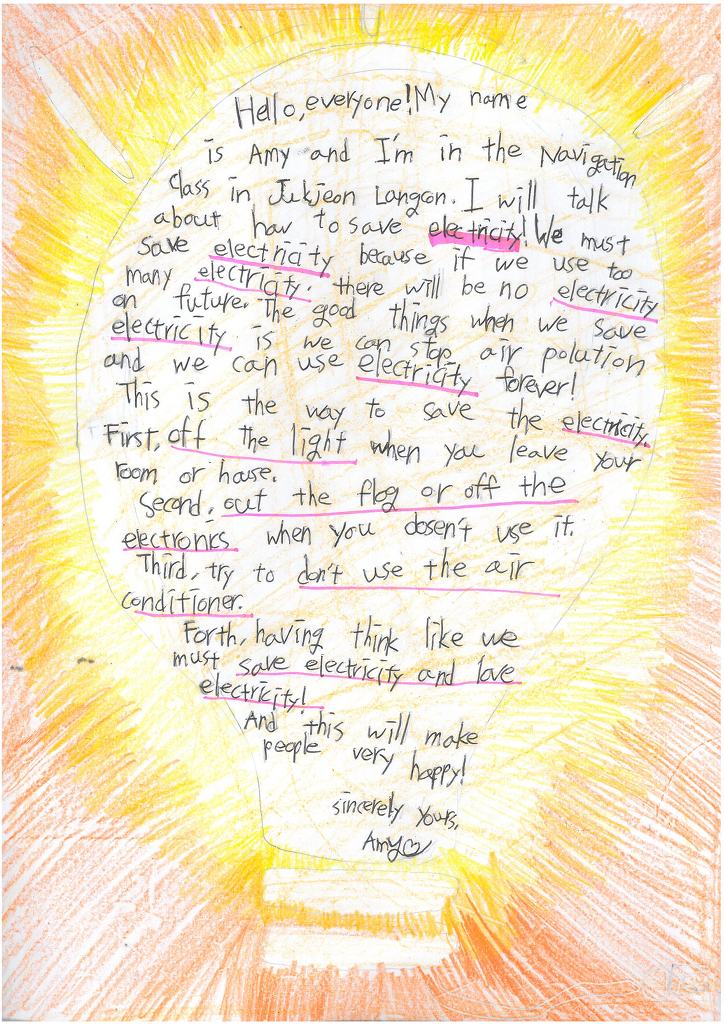 Hello, everyone! My name
is Amy and I'm in the Navigation
Class in Jukjeon Langcon. I will talk
about how to save electricity! We must
save electricity because if we use too
many electricity. there will be no electricity
on future. The good things when we save
electricity is we can stop air polution
and we can use electricity forever!
This is the way to save the electricity.
First, off the light when you leave your
room or house.
Second, out the flog or off the
electronics when you dosen't use it.
Third, try to don't use the air
conditioner.
Forth, having think like we
must save electricity and love
electricity!
And this will make
people very happy!
sincerely yours,
Amy